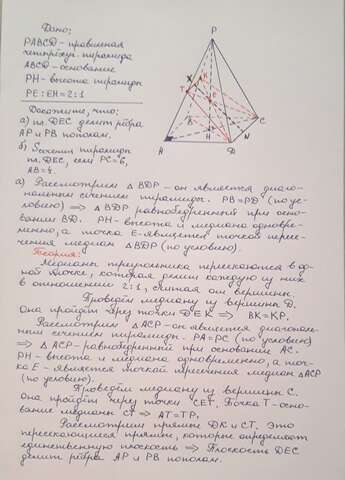 Дано:
PABCD - правильная
четырёхуг. пирамида
ABCD - основание
PH - высота пирамиды
PE:EH=2:1
Докажите, что:
а) пл. DEC делит рёбра
AP и PB пополам.
б) Sсечения пирамиды
пл. DEC, если PC=6,
AB=4.
P
X
K
T
E
B
C
H
N
A
D
а) Рассмотрим △BDP - он является диаго-
нальным сечением пирамиды. PB=PD (по ус-
ловию) ⇒ △BDP равнобедренный при осно-
вании BD. PH - высота и медиана одновре-
менно, а точка E - является точкой пересе-
чения медиан △BDP (по условию).
Теория:
Медианы треугольника пересекаются в од-
ной точке, которая делит каждую из них
в отношении 2:1, считая от вершины.
Проведём медиану из вершины D.
Она пройдёт через точки DEK ⇒ BK=KP.
Рассмотрим △ACP - он является диагональ-
ным сечением пирамиды. PA=PC (по условию)
⇒ △ACP - равнобедренный при основании AC.
PH - высота и медиана одновременно, а точ-
ка E - является точкой пересечения медиан △ACP
(по условию).
Проведём медиану из вершины C.
Она пройдёт через точки CET. Точка T - осно-
вание медианы CT ⇒ AT=TP.
Рассмотрим прямые DK и CT. Это
пересекающиеся прямые, которые определяют
единственную плоскость ⇒ Плоскость DEC
делит рёбра AP и PB пополам.